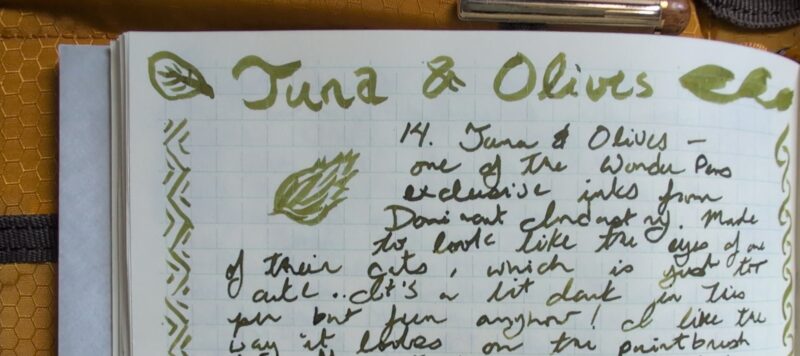 Tuna & Olives
14. Tuna & Olives -
one of the Wonder Pens
exclusive inks from
Dominant Industry. Made
to look like the eyes of one
of their cats, which is just too
cute.. It's a bit dark in this
pen but fun anyhow! I like the
way it looks on the paintbrush